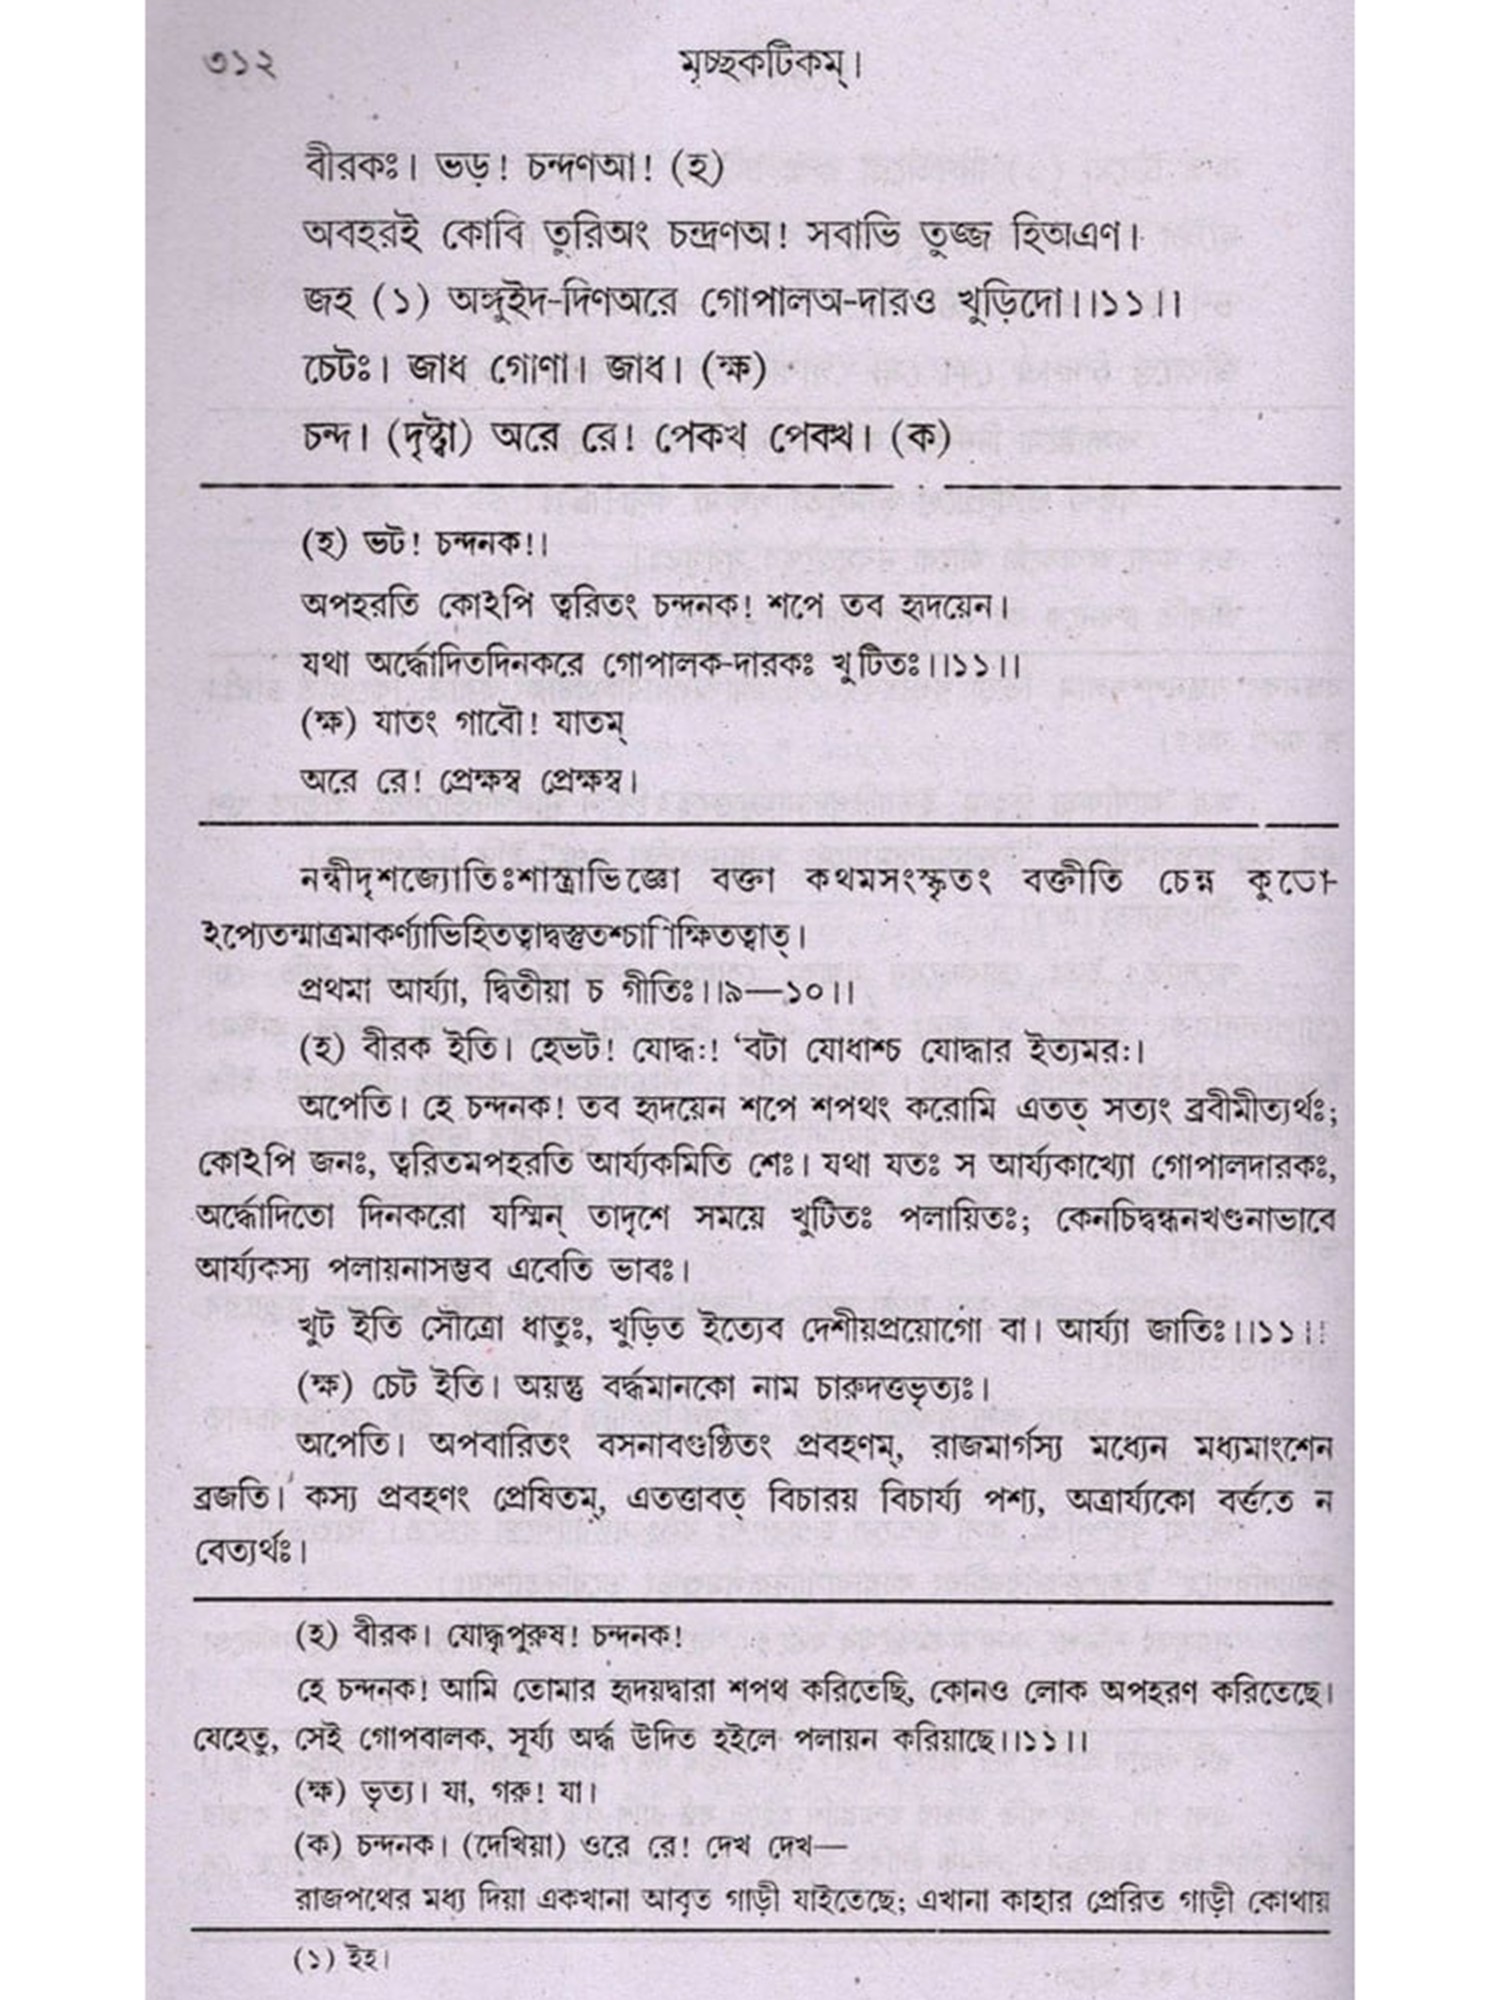 ৩১২
মৃচ্ছকটিকম্।
বীরকঃ। ভড়! চন্দণআ! (হ)
অবহরই কোবি তুরিঅং চন্দ্রণঅ! সবাভি তুজ্জ হিঅএণ।
জহ (১) অঙ্গুইদ-দিণঅরে গোপালঅ-দারও খুড়িদো।।১১।।
চেটঃ। জাধ গোণা। জাধ। (ক্ষ)
চন্দ। (দৃষ্ট্বা) অরে রে! পেকখ পেক্খ। (ক)
(হ) ভট! চন্দনক!।
অপহরতি কোইপি ত্বরিতং চন্দনক! শপে তব হৃদয়েন।
যথা অর্দ্ধোদিতদিনকরে গোপালক-দারকঃ খুটিতঃ।।১১।।
(ক্ষ) যাতং গাবৌ! যাতম্
অরে রে! প্রেক্ষস্ব প্রেক্ষস্ব।
নন্বীদৃশজ্যোতিঃশাস্ত্রাভিজ্ঞো বক্তা কথমসংস্কৃতং বক্তীতি চেন্ন কুতো-
ইপ্যেতন্মাত্রমাকর্ণ্যাভিহিতত্বাদ্বস্তুতশ্চাশিক্ষিতত্বাৎ।
প্রথমা আর্য্যা, দ্বিতীয়া চ গীতিঃ।।৯—১০।।
(হ) বীরক ইতি। হেভট! যোদ্ধঃ! ‘বটা যোধাশ্চ যোদ্ধার ইত্যমরঃ।
অপেতি। হে চন্দনক! তব হৃদয়েন শপে শপথং করোমি এতত্ সত্যং ব্রবীমীত্যর্থঃ;
কোইপি জনঃ, ত্বরিতমপহরতি আর্য্যকমিতি শেঃ। যথা যতঃ স আর্য্যকাখ্যো গোপালদারকঃ,
অর্দ্ধোদিতো দিনকরো যস্মিন্ তাদৃশে সময়ে খুটিতঃ পলায়িতঃ; কেনচিদ্বন্ধনখণ্ডনাভাবে
আর্য্যকস্য পলায়নাসম্ভব এবেতি ভাবঃ।
খুট ইতি সৌত্রো ধাতুঃ, খুড়িত ইত্যেব দেশীয়প্রয়োগো বা। আর্য্যা জাতিঃ।।১১।।
(ক্ষ) চেট ইতি। অয়ন্তু বর্দ্ধমানকো নাম চারুদত্তভৃত্যঃ।
অপেতি। অপবারিতং বসনাবগুণ্ঠিতং প্রবহণম্, রাজমার্গস্য মধ্যেন মধ্যমাংশেন
ব্রজতি। কস্য প্রবহণং প্রেষিতম্, এতত্তাবত্ বিচারয় বিচার্য্য পশ্য, অত্রার্য্যকো বর্ত্ততে ন
বেত্যর্থঃ।
(হ) বীরক। যোদ্ধৃপুরুষ! চন্দনক!
হে চন্দনক! আমি তোমার হৃদয়দ্বারা শপথ করিতেছি, কোনও লোক অপহরণ করিতেছে।
যেহেতু, সেই গোপবালক, সূর্য্য অর্দ্ধ উদিত হইলে পলায়ন করিয়াছে।।১১।।
(ক্ষ) ভৃত্য। যা, গরু! যা।
(ক) চন্দনক। (দেখিয়া) ওরে রে! দেখ দেখ—
রাজপথের মধ্য দিয়া একখানা আবৃত গাড়ী যাইতেছে; এখানা কাহার প্রেরিত গাড়ী কোথায়
(১) ইহ।